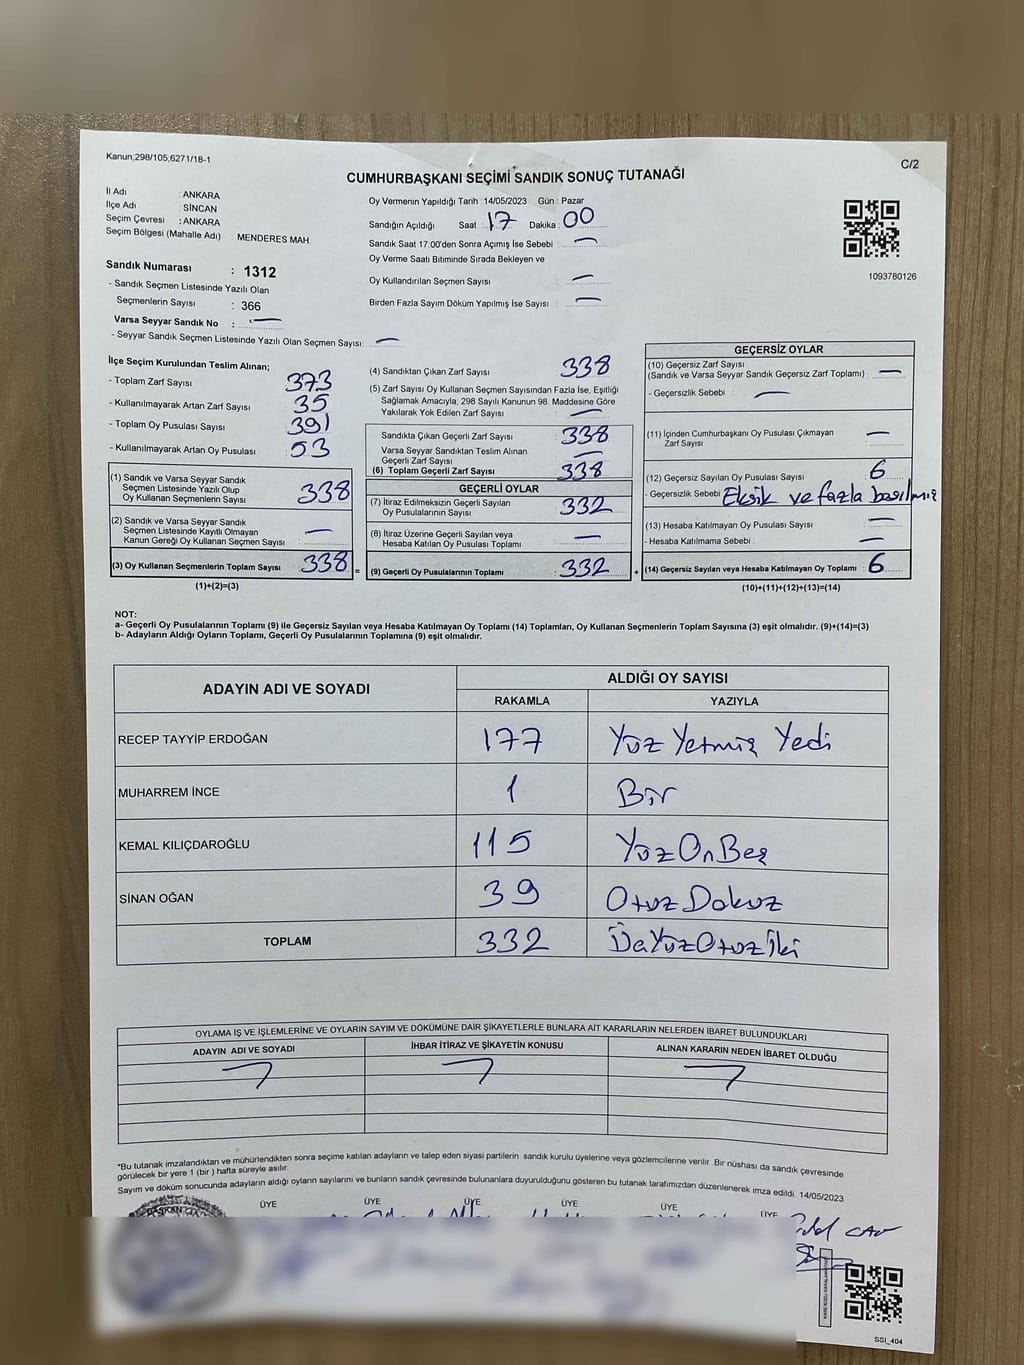 Kanun;298/105;6271/18-1
C/2
CUMHURBAŞKANI SEÇİMİ SANDIK SONUÇ TUTANAĞI
İl Adı : ANKARA
İlçe Adı : SİNCAN
Seçim Çevresi : ANKARA
Seçim Bölgesi (Mahalle Adı) : MENDERES MAH.
Sandık Numarası : 1312
- Sandık Seçmen Listesinde Yazılı Olan
Seçmenlerin Sayısı : 366
Varsa Seyyar Sandık No : —
- Seyyar Sandık Seçmen Listesinde Yazılı Olan Seçmen Sayısı: —
Oy Vermenin Yapıldığı Tarih :14/05/2023 Gün : Pazar
Sandığın Açıldığı Saat : 17 Dakika : 00
Sandık Saat 17:00'den Sonra Açımış İse Sebebi : —
Oy Verme Saati Bitiminde Sırada Bekleyen ve
Oy Kullandırılan Seçmen Sayısı : —
Birden Fazla Sayım Döküm Yapılmış İse Sayısı : —
1093780126
İlçe Seçim Kurulundan Teslim Alınan;
- Toplam Zarf Sayısı : 373
- Kullanılmayarak Artan Zarf Sayısı : 35
- Toplam Oy Pusulası Sayısı : 391
- Kullanılmayarak Artan Oy Pusulası : 53
(1) Sandık ve Varsa Seyyar Sandık
Seçmen Listesinde Yazılı Olup
Oy Kullanan Seçmenlerin Sayısı : 338
(2) Sandık ve Varsa Seyyar Sandık
Seçmen Listesinde Kayıtlı Olmayan
Kanun Gereği Oy Kullanan Seçmen Sayısı : —
(3) Oy Kullanan Seçmenlerin Toplam Sayısı : 338 =
(1)+(2)=(3)
(4) Sandıktan Çıkan Zarf Sayısı : 338
(5) Zarf Sayısı Oy Kullanan Seçmen Sayısından Fazla İse, Eşitliği
Sağlamak Amacıyla; 298 Sayılı Kanunun 98. Maddesine Göre
Yakılarak Yok Edilen Zarf Sayısı : —
Sandıkta Çıkan Geçerli Zarf Sayısı : 338
Varsa Seyyar Sandıktan Teslim Alınan
Geçerli Zarf Sayısı : —
(6) Toplam Geçerli Zarf Sayısı : 338
GEÇERLİ OYLAR
(7) İtiraz Edilmeksizin Geçerli Sayılan
Oy Pusulalarının Sayısı : 332
(8) İtiraz Üzerine Geçerli Sayılan veya
Hesaba Katılan Oy Pusulası Toplamı : —
(9) Geçerli Oy Pusulalarının Toplamı : 332 +
GEÇERSİZ OYLAR
(10) Geçersiz Zarf Sayısı
(Sandık ve Varsa Seyyar Sandık Geçersiz Zarf Toplamı) : —
- Geçersizlik Sebebi : —
(11) İçinden Cumhurbaşkanı Oy Pusulası Çıkmayan
Zarf Sayısı : —
(12) Geçersiz Sayılan Oy Pusulası Sayısı : 6
- Geçersizlik Sebebi : Eksik ve fazla basılmış
(13) Hesaba Katılmayan Oy Pusulası Sayısı : —
- Hesaba Katılmama Sebebi : —
(14) Geçersiz Sayılan veya Hesaba Katılmayan Oy Toplamı : 6
(10)+(11)+(12)+(13)=(14)
NOT:
a- Geçerli Oy Pusulalarının Toplamı (9) ile Geçersiz Sayılan veya Hesaba Katılmayan Oy Toplamı (14) Toplamları, Oy Kullanan Seçmenlerin Toplam Sayısına (3) eşit olmalıdır. (9)+(14)=(3)
b- Adayların Aldığı Oyların Toplamı, Geçerli Oy Pusulalarının Toplamına (9) eşit olmalıdır.
ADAYIN ADI VE SOYADI
ALDIĞI OY SAYISI
RAKAMLA YAZIYLA
RECEP TAYYİP ERDOĞAN 177 Yüz Yetmiş Yedi
MUHARREM İNCE 1 Bir
KEMAL KILIÇDAROĞLU 115 Yüz On Beş
SİNAN OĞAN 39 Otuz Dokuz
TOPLAM 332 Üç Yüz Otuz İki
OYLAMA İŞ VE İŞLEMLERİNE VE OYLARIN SAYIM VE DÖKÜMÜNE DAİR ŞİKAYETLERLE BUNLARA AİT KARARLARIN NELERDEN İBARET BULUNDUKLARI
ADAYIN ADI VE SOYADI İHBAR İTİRAZ VE ŞİKAYETİN KONUSU ALINAN KARARIN NEDEN İBARET OLDUĞU
*Bu tutanak imzalandıktan ve mühürlendikten sonra seçime katılan adayların ve talep eden siyasi partilerin sandık kurulu üyelerine veya gözlemcilerine verilir. Bir nüshası da sandık çevresinde
görülecek bir yere 1 (bir ) hafta süreyle asılır.
Sayım ve döküm sonucunda adayların aldığı oyların sayılarını ve bunların sandık çevresinde bulunanlara duyurulduğunu gösteren bu tutanak tarafımızdan düzenlenerek imza edildi. 14/05/2023
BAŞKAN ÜYE ÜYE ÜYE ÜYE ÜYE ÜYE
SSI_404